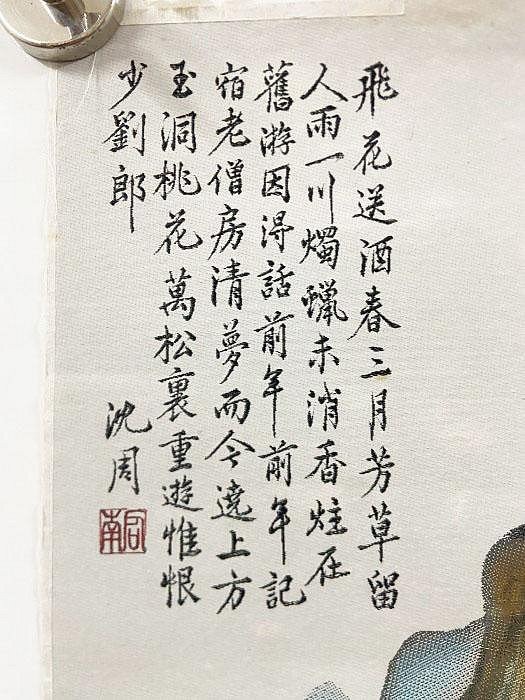 飛花送酒春三月芳草留
人雨一川燭蠟未消香炷在
舊游因得話前年前年記
宿老僧房清夢而今遶上方
玉洞桃花萬松裏重遊惟恨
少劉郎
沈周
啟南